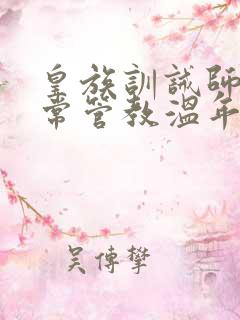 皇族訓誡師
常管教溫年
吴傳攀